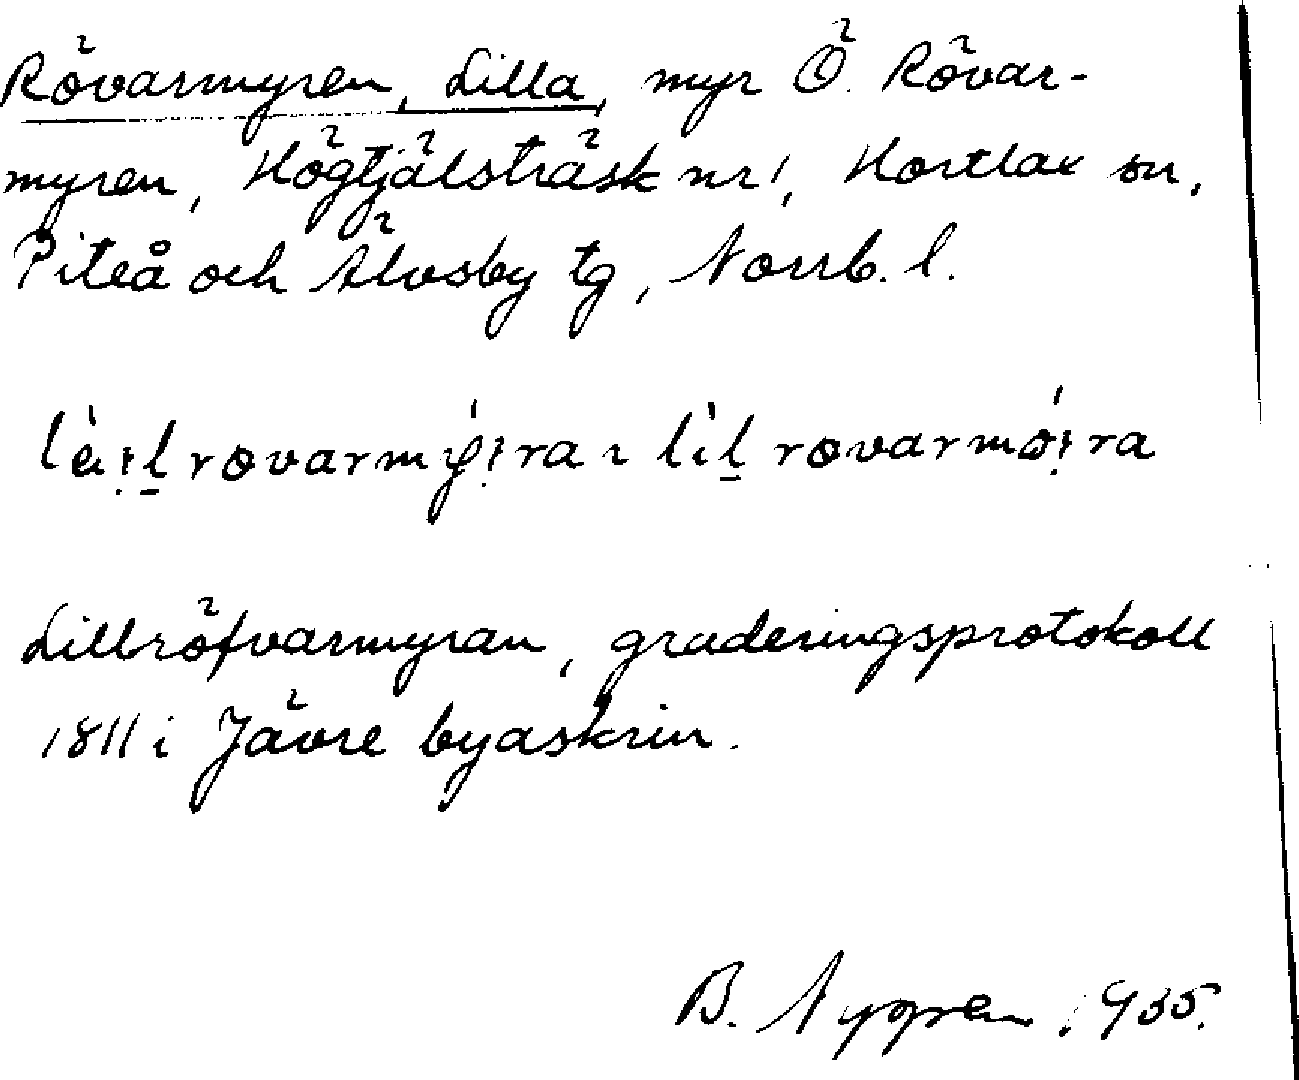 Rövarmyren, Lilla, myr Ö. Rövar-
myren, Högtjälsträsk nr 1, Hortlax sn,
Piteå och Älvsby tg, Norrb. l.
Lillröfvarmyran, graderingsprotokoll
1811 i Jävre byaskrin.
B. Nygren 1935.